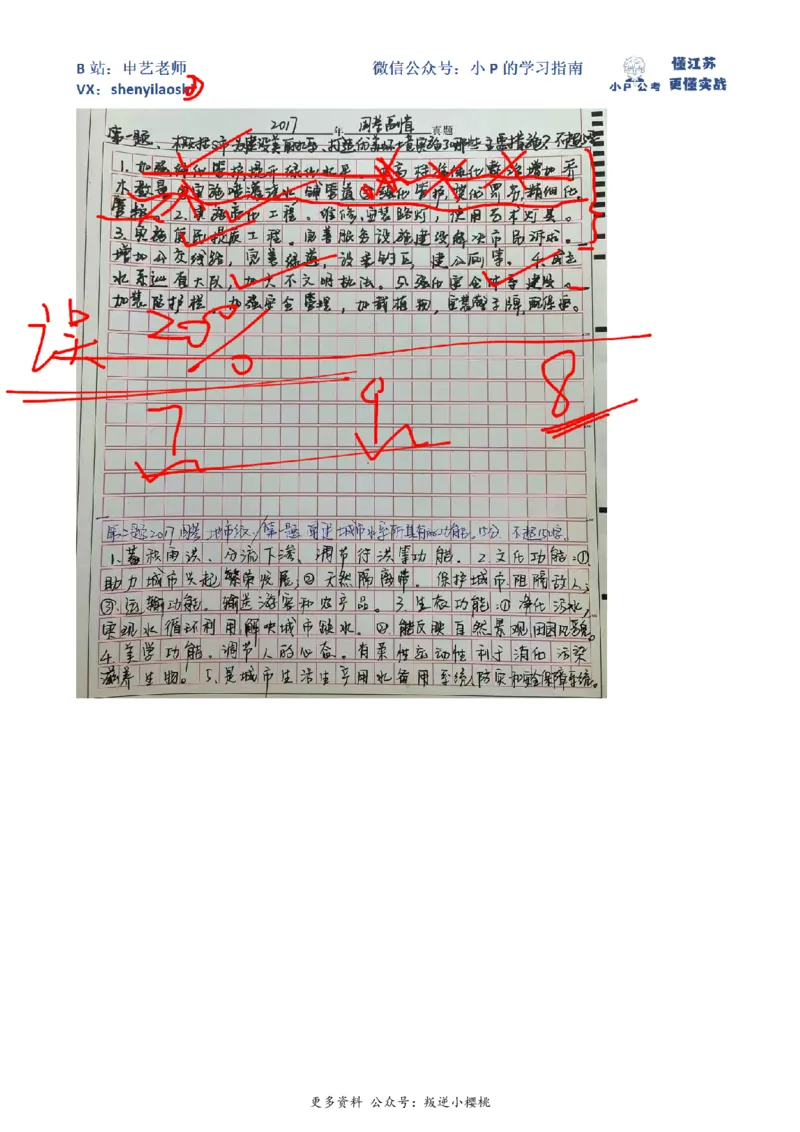 B 站：申艺老师 微信公众号：小 P 的学习指南
懂江苏
VX：shenyilaoshi
小P公考 更懂实战
2017 年 国考副省 真题
第一题、概括S市为建设美丽水系、打造优美环境实施了哪些主要措施？不超
1.加强绿化管护提升绿化水平 高标准绿化 增加乔
木数量 实施喷灌浇水，铺管道 强化管护，精细化
管护。2.实施亮化工程。维修、安装路灯，使用艺术灯具。
3.实施便民提质工程。完善服务设施建设解决市民诉求。
增加公交线路，完善绿道，设 建公厕等。4.成立
水系巡查大队，加大不文明执法。5.强化安全体系建设。
加装防护栏，加强安全管理，加栽植物，安装警示牌
误
200
0
8
7
9
第二题2017国考地市级/第一题 城市水系所具有的功能。15分 不超150字。
1.蓄积雨洪、分流下渗、调节行洪等功能。2.文化功能：①
助力城市兴起繁荣发展；②天然隔离带。保护城市、阻隔敌人；
③运输功能。输送游客和农产品。3.生态功能：①净化污水，
实现水循环利用解决城市缺水。②能反映自然景观田园风貌。
4.美学功能。调节人的心态。有柔性运动性利于消化污染
滋养生物。5.是城市生活生产用水备用系统，防灾和安全保障系统。
更多资料 公众号：叛逆小樱桃